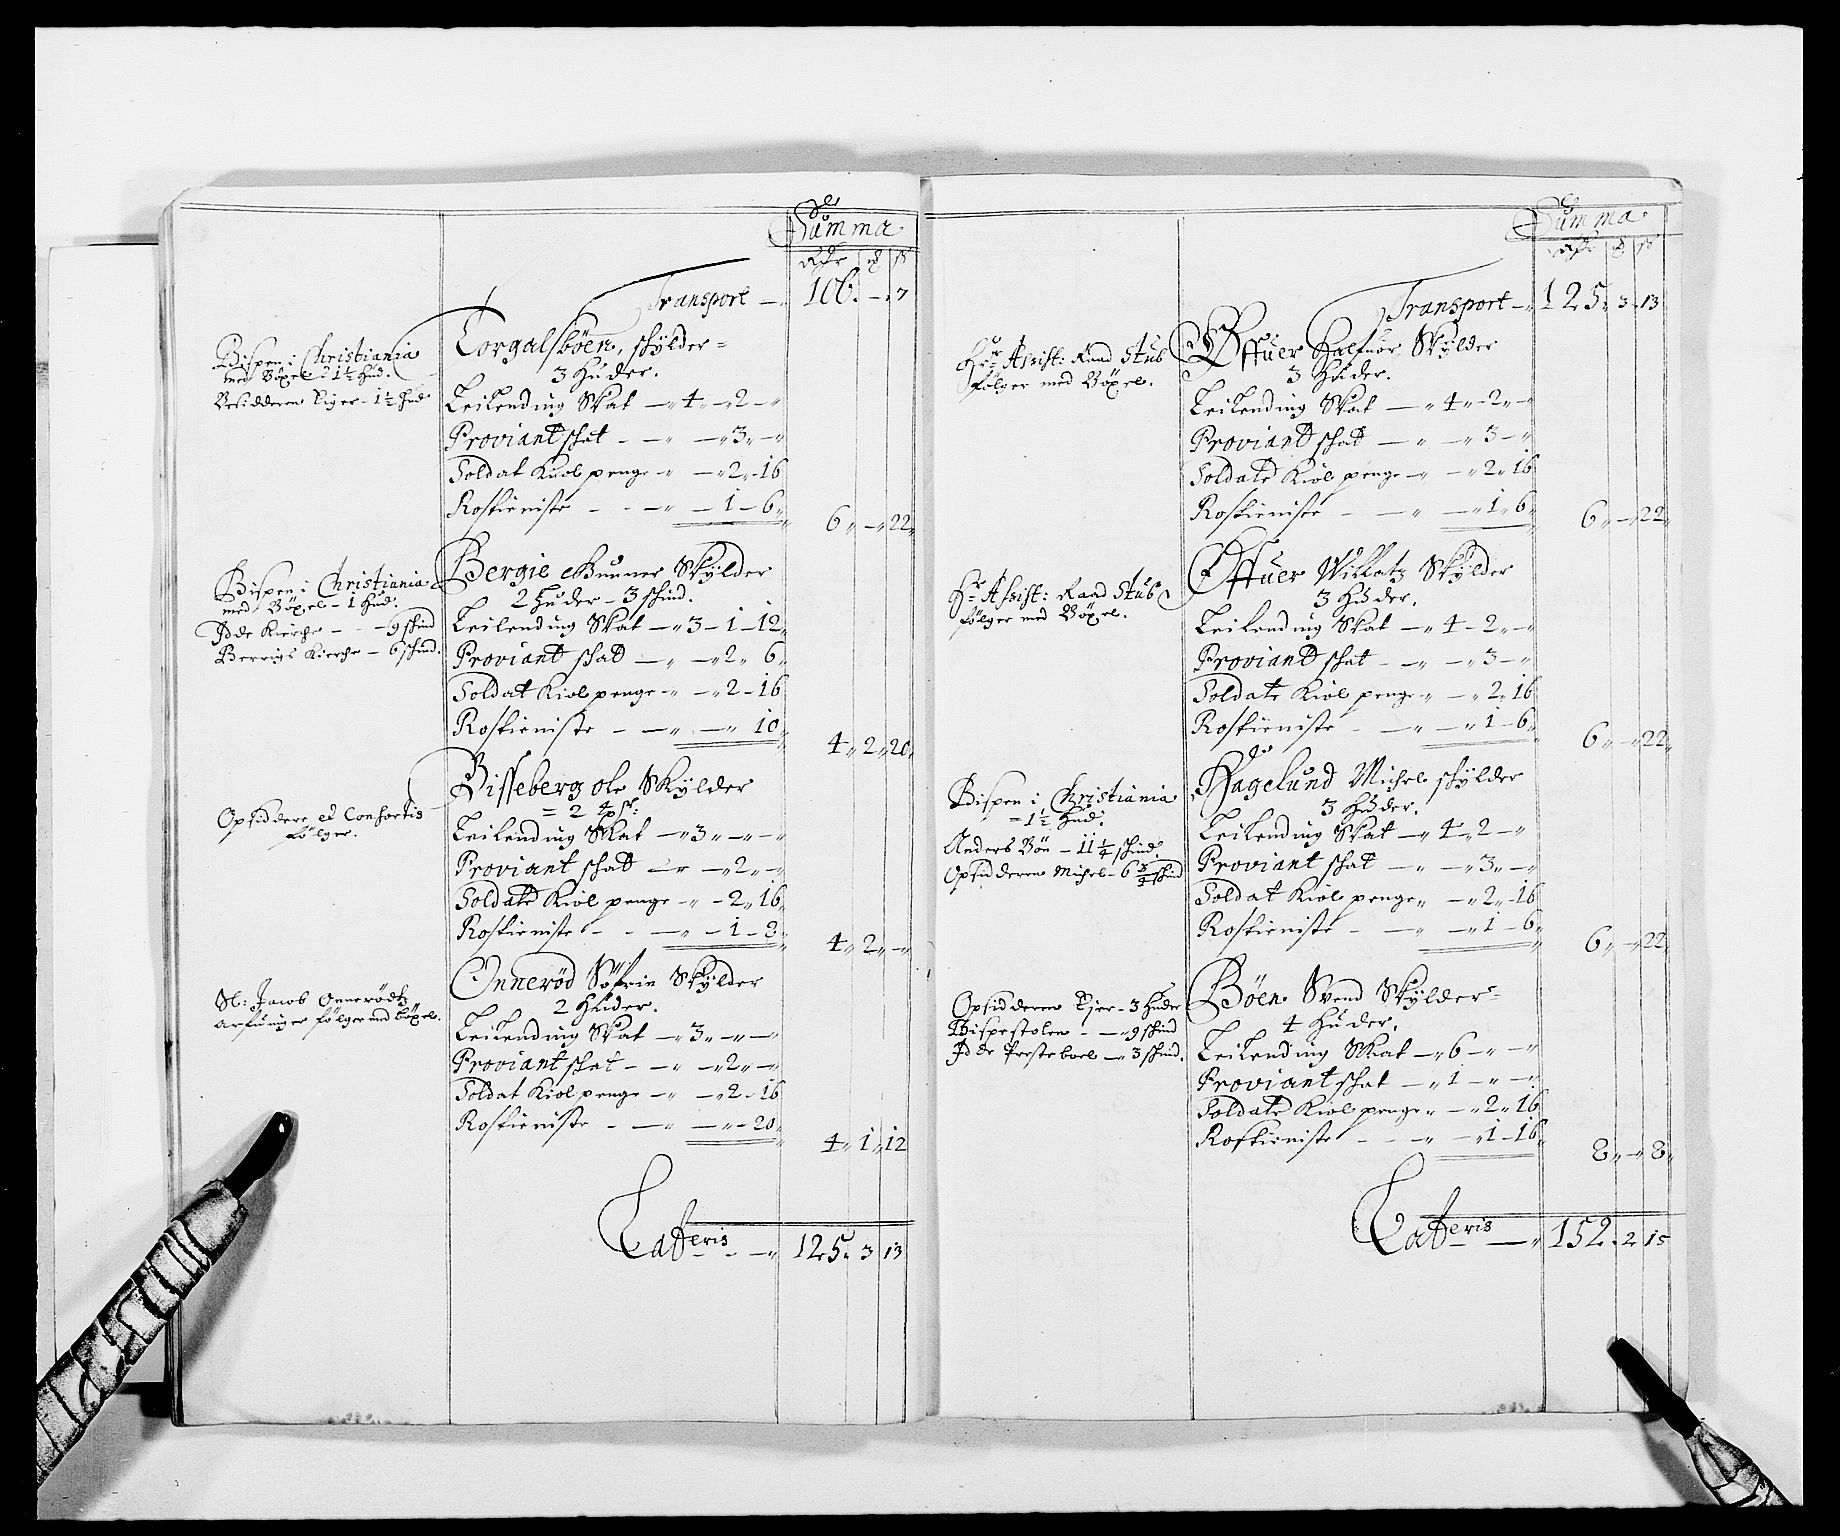 Summa
Rdr ort ß
Transport — 106 „ — „ 7
Bispen i Christiania
med Böxel 1½ hud.
Besidderen Eiger - 1½ hud
Torgalsböen, schÿlder =
3 Huder.
Leilending Skat — „ 4 „ - 2 - „
Proviant schat - — „ — „ 3 „ - „
Soldat Kiolpenge - „ — „ 2 „ - 16
Rostieniste - - — „ — 1 - 6 „
6 „ — „ 22 „
Bispen i Christiania
med Böxel - 1 hud.
Idde Kierche - - 9 schind
Berrigs Kierche - 6 schind.
Bergie Gunner Skÿlder
2 Huder - 3 schind.
Leilending Skat — „ 3 - 1 - 12 „
Proviant schat — „ — „ 2 „ 6 „
Soldat Kiolpenge - „ — „ 2 - 16
Rostieniste - — „ — „ 10 „
4 „ 2 „ 20 „
Opsiddere et Consortis
følger.
Bisseberg Ole Skÿlder
= 2
Leilending Skat — „ 3 „ - „ - „
Proviant schat — „ — „ 2 „ - „
Soldate Kiolpenge - „ - 2 „ 16 „
Rostieniste - - — „ - 1 - 8 „
4 „ 2 „ - „
Sl: Jacob Onnerödtz
arfuinger følger med böxel.
Onneröd Söfrin Skÿlder
2 Huder.
Leilending Skat — „ 3 „ - „ - „
Proviant schat - — „ — „ 2 „ - „
Soldat Kiolpenge — „ — „ 2 - 16
Rostieniste - — „ — „ - 20 „
4 „ 1 „ 12
Latteris - - — „ 125 „ 3 „ 13
Summa
Rdr ort ß
Transport — „ 125 „ 3 „ 13
Hr Assist: Raad Stub
følger med Böxel.
Öffuer Halfuor Skÿlder
3 Huder.
Leilending Skat — „ 4 „ - 2 „ - „
Proviant schat — „ — „ 3 - „
Soldate Kiolpenge — „ — „ 2 „ 16
Rostieniste - — „ — „ 1 „ 6 „
6 „ — „ 22 „
Hr Assist: Raad Stub
følger med Böxel.
Öffuer Willatz Skÿlder
3 Huder.
Leilending Skat — „ 4 - 2 „ - „
Proviant schat - — „ — „ 3 - „
Soldate Kiolpenge „ — „ 2 „ 16
Rostieniste - — „ — „ 1 - 6 „
6 „ — „ 22 „
Bispen i Christiania
= 1½ hud.
Anders Bön - 11¼ schind.
Opsidderen Michel - 6¾ schind
Hagelund Michel schÿlder
3 Huder.
Leilending Skat — „ 4 „ 2 - „
Proviant schat - „ — „ 3 „ - „
Soldat Kiolpenge „ — „ 2 „ - 16
Rostieniste - — „ — „ 1 - 6 „
6 „ — „ 22 „
Opsidderen Ejer - 3 Huder
Bispestolen - — „ 9 schind
Idde Presteboel — „ 3 schind.
Böen Svend Skÿlder =
4 Huder.
Leilending Skat — „ 6 - „ - „
Proviant schat — „ 1 - „ - „
Soldate Kiolpenge „ — „ 2 „ 16
Rostieniste - - „ — „ 1 - 16 „
8 „ — „ 8 „
Latteris — — „ 152 „ 2 „ 15